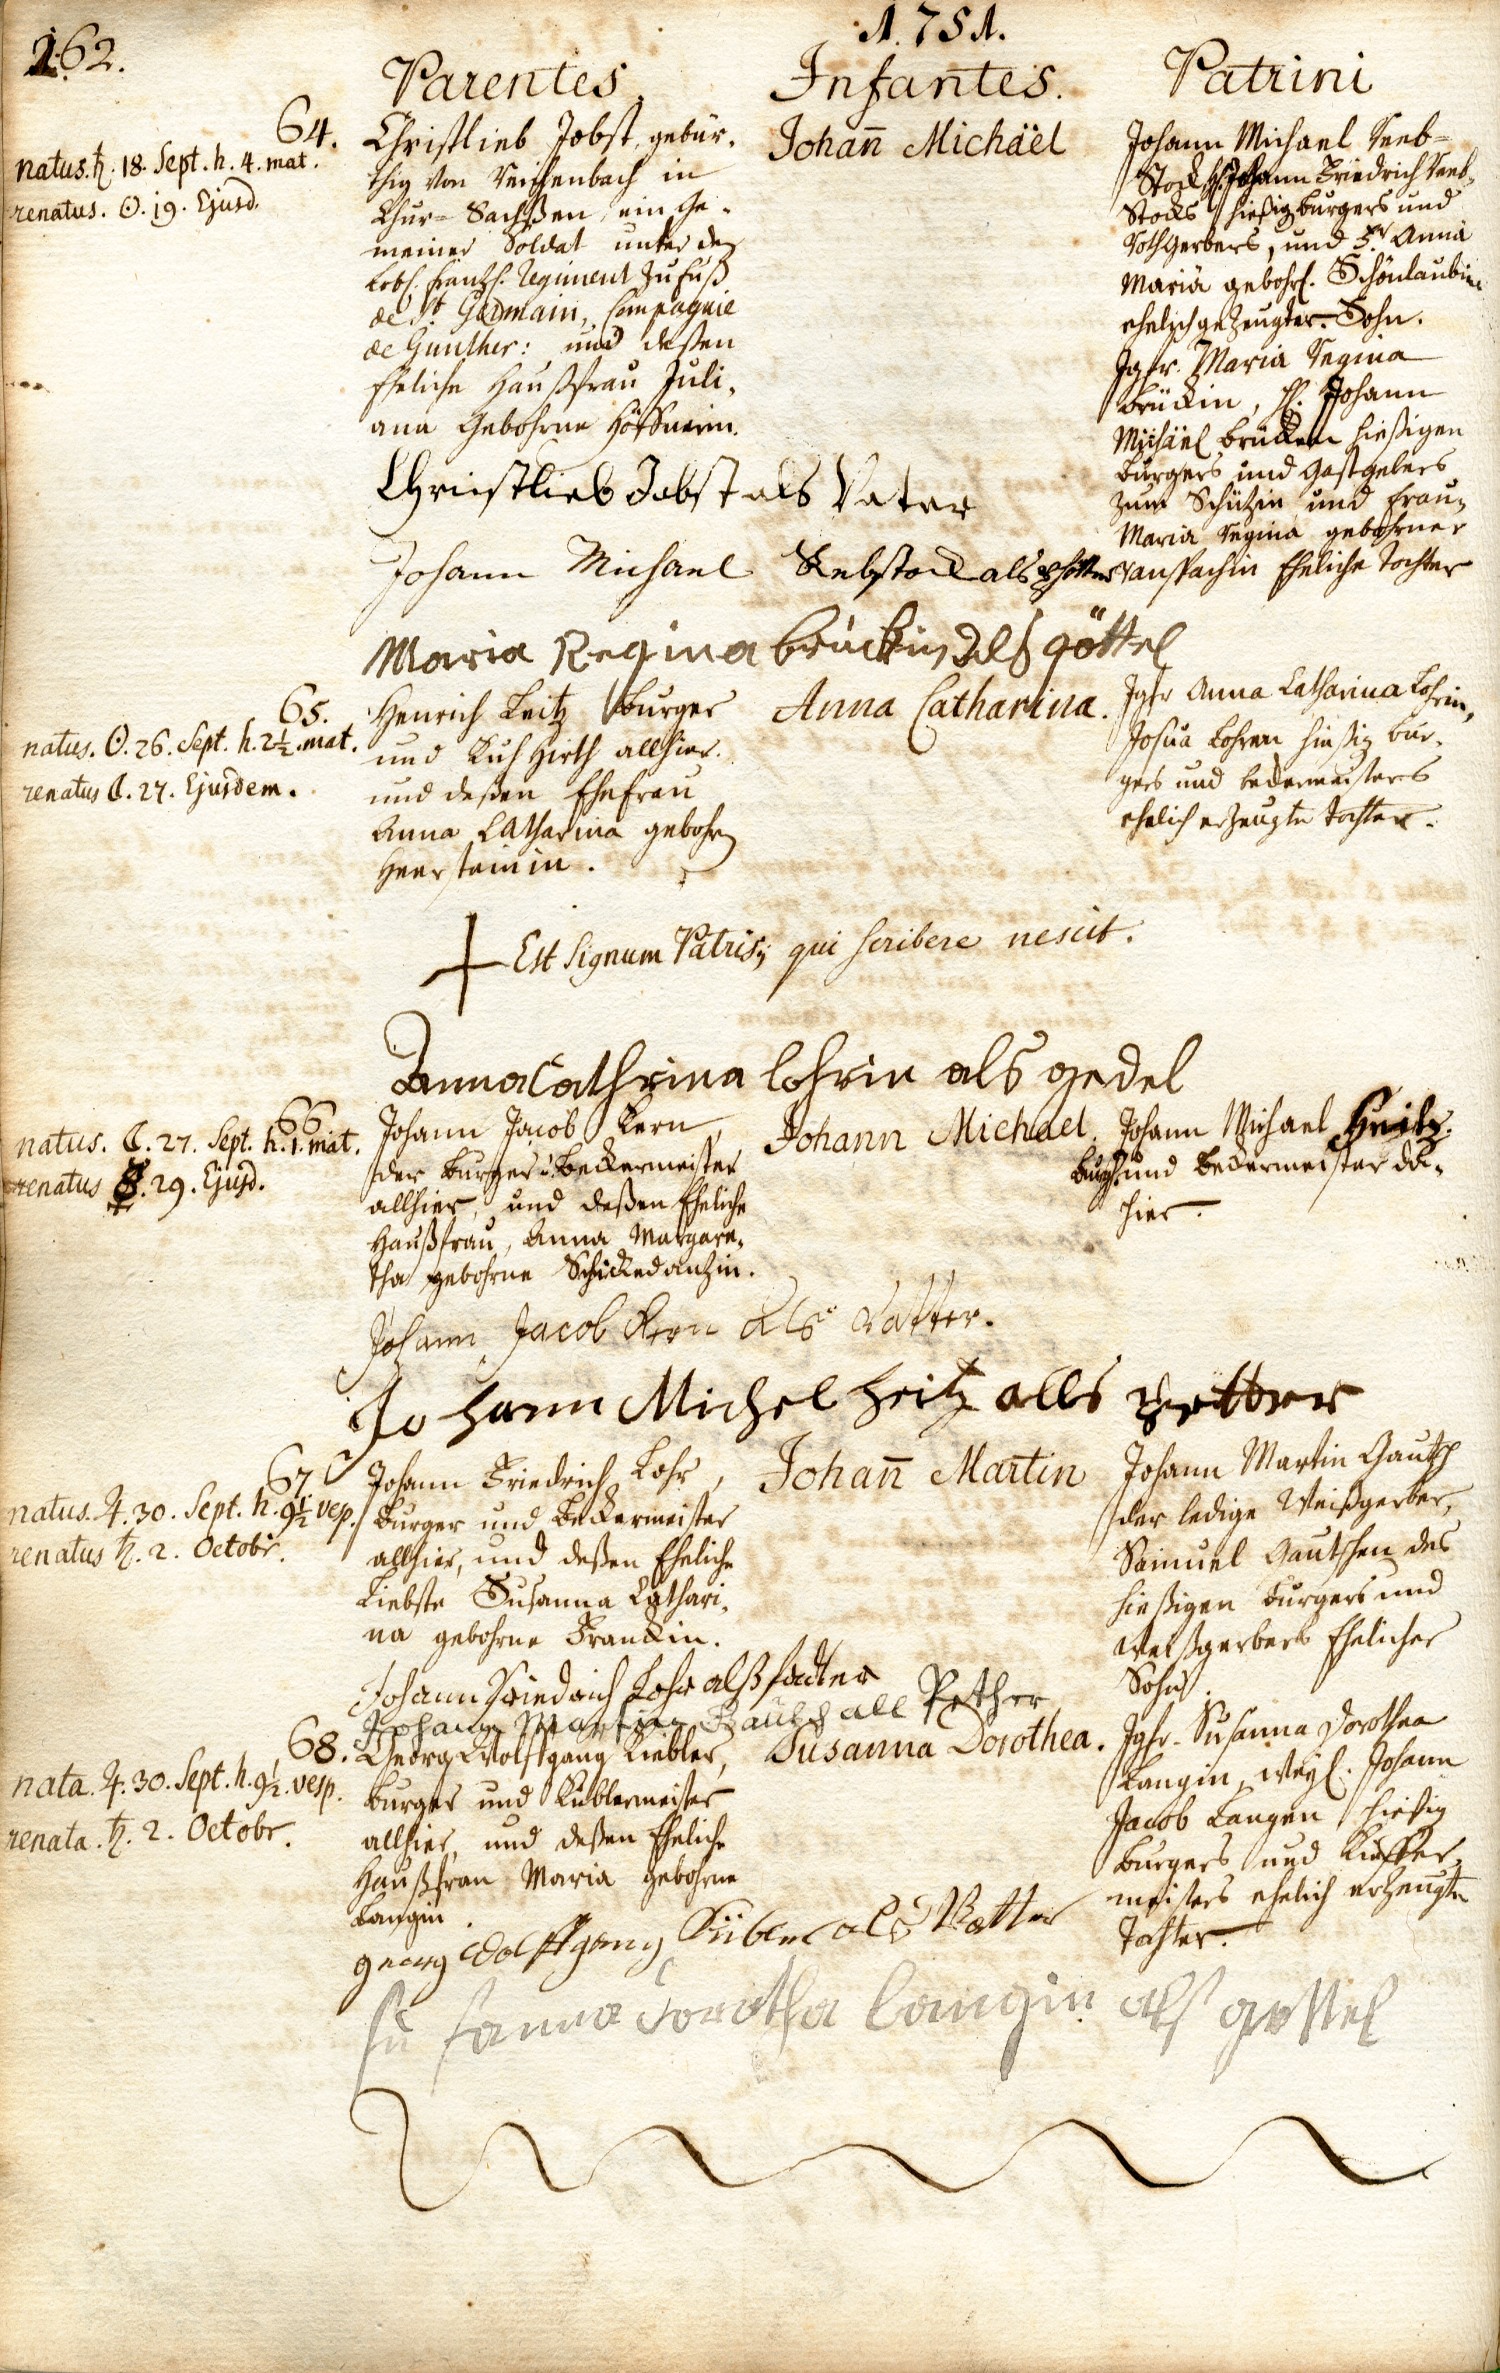 162.
1.751.
Parentes
Infantes.
Patrini
64.
natus. ♄. 18. Sept. h. 4. mat.
renatus. ☉. 19. Ejusd.
Christlieb Jobst, gebür-
thig von Reichenbach in
Chur-Sachßen, ein Ge-
meiner Soldat unter dem
löbl. frantzs. Regiment zu fuß
de St. Germain, Compagnie
de Gunther: und deßen
Eheliche Haußfrau Juli-
ana Gebohrne
Johañ Michäel
Johann Michael Reeb-
Stock, Johann Friedrich Reeb-
Stocks hießig burgers und
Rothgerbers, und Fr. Anna
Maria gebohrl. Schönlaubin
ehelich gezeugter Sohn.
Jgfr. Maria Regina
Brückin, H. Johann
Michäel Brücken hießigen
Burgers und Gastgebers
zum Schützen und Frau
Maria Regina gebohrner
Ranspachin Eheliche Tochter
Christlieb Jobst als Vater
Johann Michael Rebstock als Pfetter
Maria Regina brückin als göttel
65.
natus. ☉. 26. Sept. h. 2½. mat.
renatus ☾. 27. Ejusdem.
Henrich Leitz burger
und Kuh Hirth allhier.
und deßen Ehefrau
Anna Catharina gebohrn
Heersteinin.
Anna Catharina.
Jgfr Anna Catharina Lohrin,
Josua Lohren hießig bur-
gers und beckermeisters
ehelich erzeugte Tochter.
Est signum Patris, qui scribere nescit.
Anna Cathrina lohrin als gedel
66
natus. ☾. 27. Sept. h. 1. mat.
renatus ☿. 29. Ejusd.
Johann Jacob Kern,
der burger u. Beckermeister
allhier, und deßen Eheliche
Haußfrau, Anna Margare-
tha gebohrne Schickedantzin.
Johann Michael.
Johann Michael Heitz.
burger und beckermeister da-
hier.
Johann Jacob Kern als Vatter.
Johann Michel Heitz alls Pfetter
67
natus. ♃. 30. Sept. h. 9½ vesp.
renatus ♄. 2. Octobr.
Johann Friedrich Lohr,
burger und beckermeister
allhier, und deßen Eheliche
Liebste Susanna Cathari-
na gebohrne Franckin.
Johañ Martin
Johann Martin Gautsch
der ledige Weißgerber,
Samuel Gautschen des
hießigen burgers und
Weißgerbers Ehelicher
Sohn.
Johann Friedrich Lohr alß fadter
Johann Martin Gautsch all Pether
68.
nata. ♃. 30. Sept. h. 9½. vesp.
renata. ♄. 2. Octobr.
Georg Wolffgang Kiebler,
burger und Küblermeister
allhier, und deßen Eheliche
Haußfrau Maria gebohrne
Langin.
Susanna Dorothea.
Jgfr. Susanna Dorothea
Langin, weyl. Johann
Jacob Langen hießig
burgers und Küeffer-
meisters ehelich erzeugte
Tochter.
georg Wolffgang Kübler als Vatter
Susanna Dorotha Langin als gettel